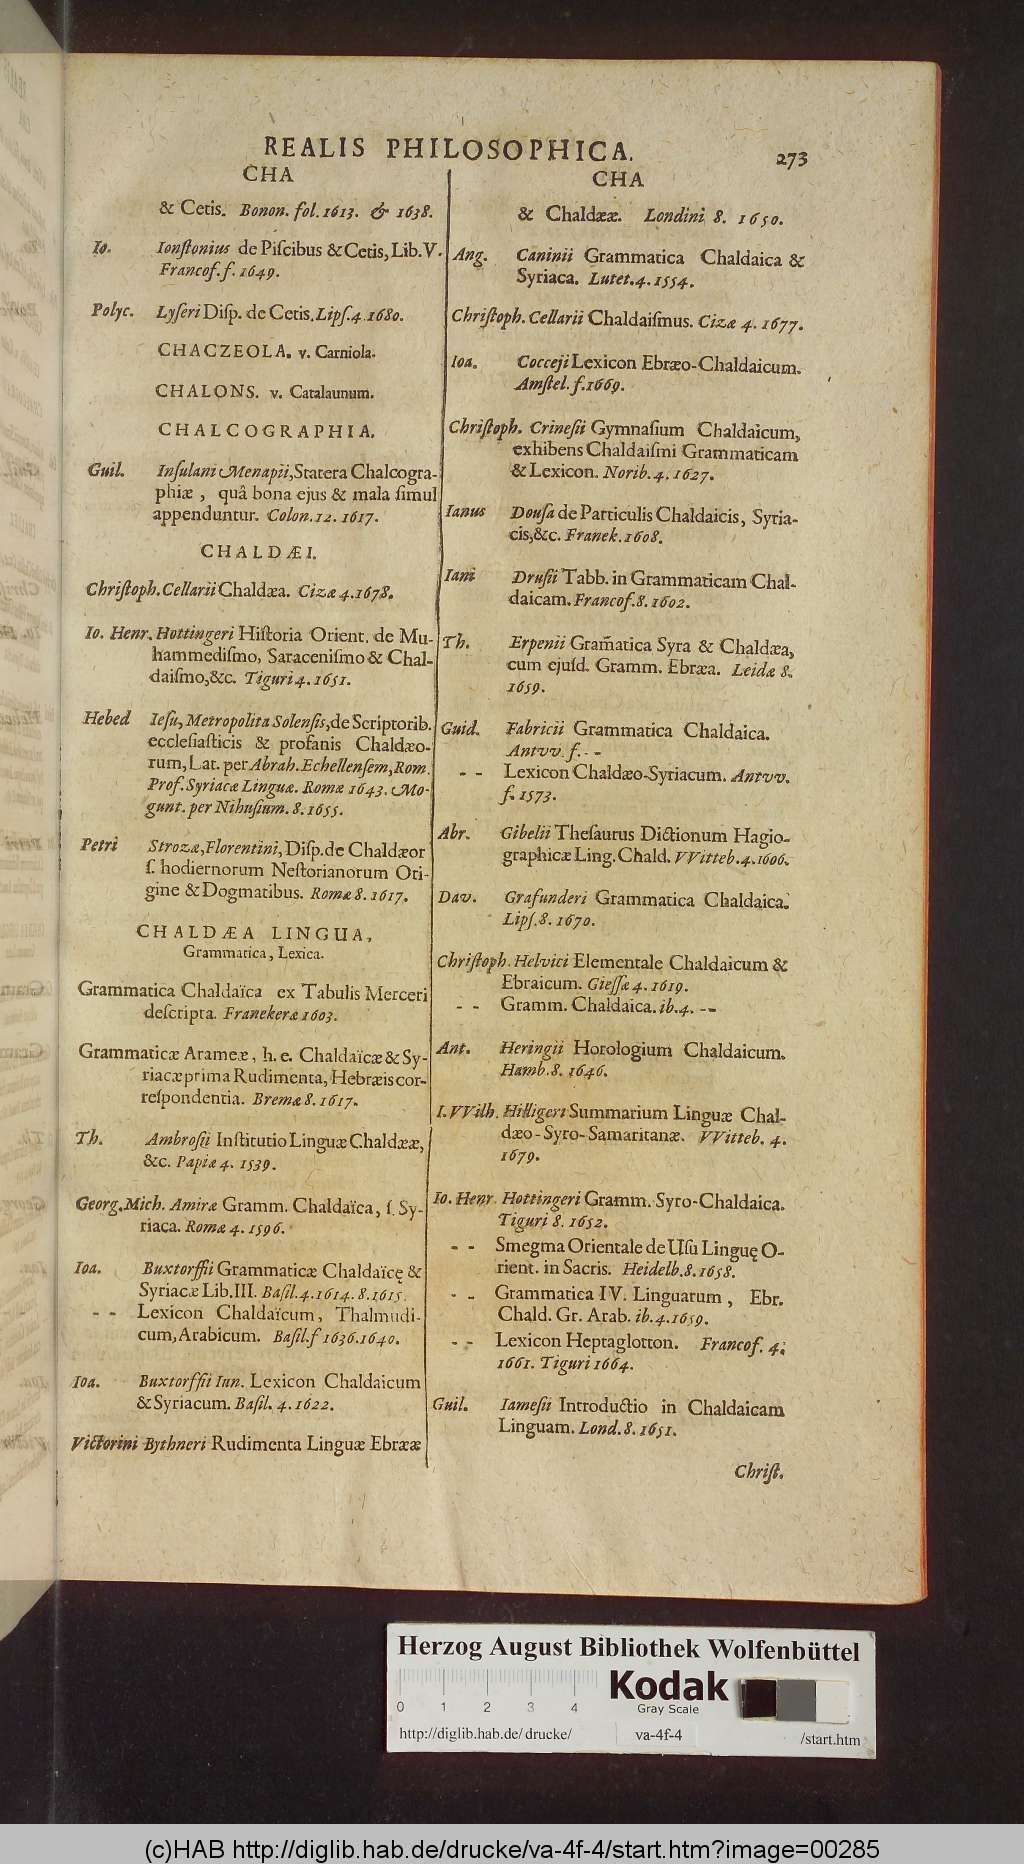 REALIS PHILOSOPHICA.
273
CHA
& Cetis. Bonon. fol. 1613. & 1638.
Io. Ionſtonius de Piſcibus & Cetis, Lib. V.
Francof. f. 1649.
Polyc. Lyſeri Diſp. de Cetis. Lipſ. 4. 1680.
CHACZEOLA. v. Carniola.
CHALONS. v. Catalaunum.
CHALCOGRAPHIA.
Guil. Inſulani Menapii, Statera Chalcogra-
phiæ, quâ bona ejus & mala ſimul
appenduntur. Colon. 12. 1617.
CHALDÆI.
Chriſtoph. Cellarii Chaldæa. Cizæ 4. 1678.
Io. Henr. Hottingeri Hiſtoria Orient. de Mu-
hammediſmo, Saraceniſmo & Chal-
daiſmo, &c. Tiguri 4. 1651.
Hebed Ieſu, Metropolita Solenſis, de Scriptorib.
eccleſiaſticis & profanis Chaldæo-
rum, Lat. per Abrah. Echellenſem, Rom.
Prof. Syriacæ Linguæ. Romæ 1643. Mo-
gunt. per Nihuſium. 8. 1655.
Petri Strozæ, Florentini, Diſp. de Chaldæor
ſ. hodiernorum Neſtorianorum Ori-
gine & Dogmatibus. Romæ 8. 1617.
CHALDÆA LINGUA,
Grammatica, Lexica.
Grammatica Chaldaïca ex Tabulis Merceri
deſcripta. Franekeræ 1603.
Grammaticæ Arameæ, h. e. Chaldaïcæ & Sy-
riacæ prima Rudimenta, Hebræis cor-
reſpondentia. Bremæ 8. 1617.
Th. Ambroſii Inſtitutio Linguæ Chaldææ,
&c. Papiæ 4. 1539.
Georg. Mich. Amiræ Gramm. Chaldaïca, ſ. Sy-
riaca. Romæ 4. 1596.
Ioa. Buxtorffii Grammaticæ Chaldaïcę &
Syriacæ Lib. III. Baſil. 4. 1614. 8. 1615.
- - Lexicon Chaldaïcum, Thalmudi-
cum, Arabicum. Baſil. f 1636. 1640.
Ioa. Buxtorffii Iun. Lexicon Chaldaicum
& Syriacum. Baſil. 4. 1622.
Victorini Bythneri Rudimenta Linguæ Ebrææ
CHA
& Chaldææ. Londini 8. 1650.
Ang. Caninii Grammatica Chaldaica &
Syriaca. Lutet. 4. 1554.
Chriſtoph. Cellarii Chaldaiſmus. Cizæ 4. 1677.
Ioa. Cocceji Lexicon Ebræo-Chaldaicum.
Amſtel. f. 1669.
Chriſtoph. Crineſii Gymnaſium Chaldaicum,
exhibens Chaldaiſmi Grammaticam
& Lexicon. Norib. 4. 1627.
Ianus Douſa de Particulis Chaldaicis, Syria-
cis, &c. Franek. 1608.
Iani Druſii Tabb. in Grammaticam Chal-
daicam. Francof. 8. 1602.
Th. Erpenii Gram̃atica Syra & Chaldæa,
cum ejuſd. Gramm. Ebræa. Leidæ 8.
1659.
Guid. Fabricii Grammatica Chaldaica.
Antvv. f. - -
- - Lexicon Chaldæo-Syriacum. Antvv.
f. 1573.
Abr. Gibelii Theſaurus Dictionum Hagio-
graphicæ Ling. Chald. VVitteb. 4. 1606.
Dav. Grafunderi Grammatica Chaldaica.
Lipſ. 8. 1670.
Chriſtoph. Helvici Elementale Chaldaicum &
Ebraicum. Gieſſæ 4. 1619.
- - Gramm. Chaldaica. ib. 4. - -
Ant. Heringii Horologium Chaldaicum.
Hamb. 8. 1646.
I. VVilh. Hilligeri Summarium Linguæ Chal-
dæo-Syro-Samaritanæ. VVitteb. 4.
1679.
Io. Henr. Hottingeri Gramm. Syro-Chaldaica.
Tiguri 8. 1652.
- - Smegma Orientale de Uſu Linguę O-
rient. in Sacris. Heidelb. 8. 1658.
- - Grammatica IV. Linguarum, Ebr.
Chald. Gr. Arab. ib. 4. 1659.
- - Lexicon Heptaglotton. Francof. 4.
1661. Tiguri 1664.
Guil. Iameſii Introductio in Chaldaicam
Linguam. Lond. 8. 1651.
Chriſt.
Herzog August Bibliothek Wolfenbüttel
0 1 2 3 4
Kodak
Gray Scale
http://diglib.hab.de/drucke/ va-4f-4 /start.htm
(c)HAB http://diglib.hab.de/drucke/va-4f-4/start.htm?image=00285